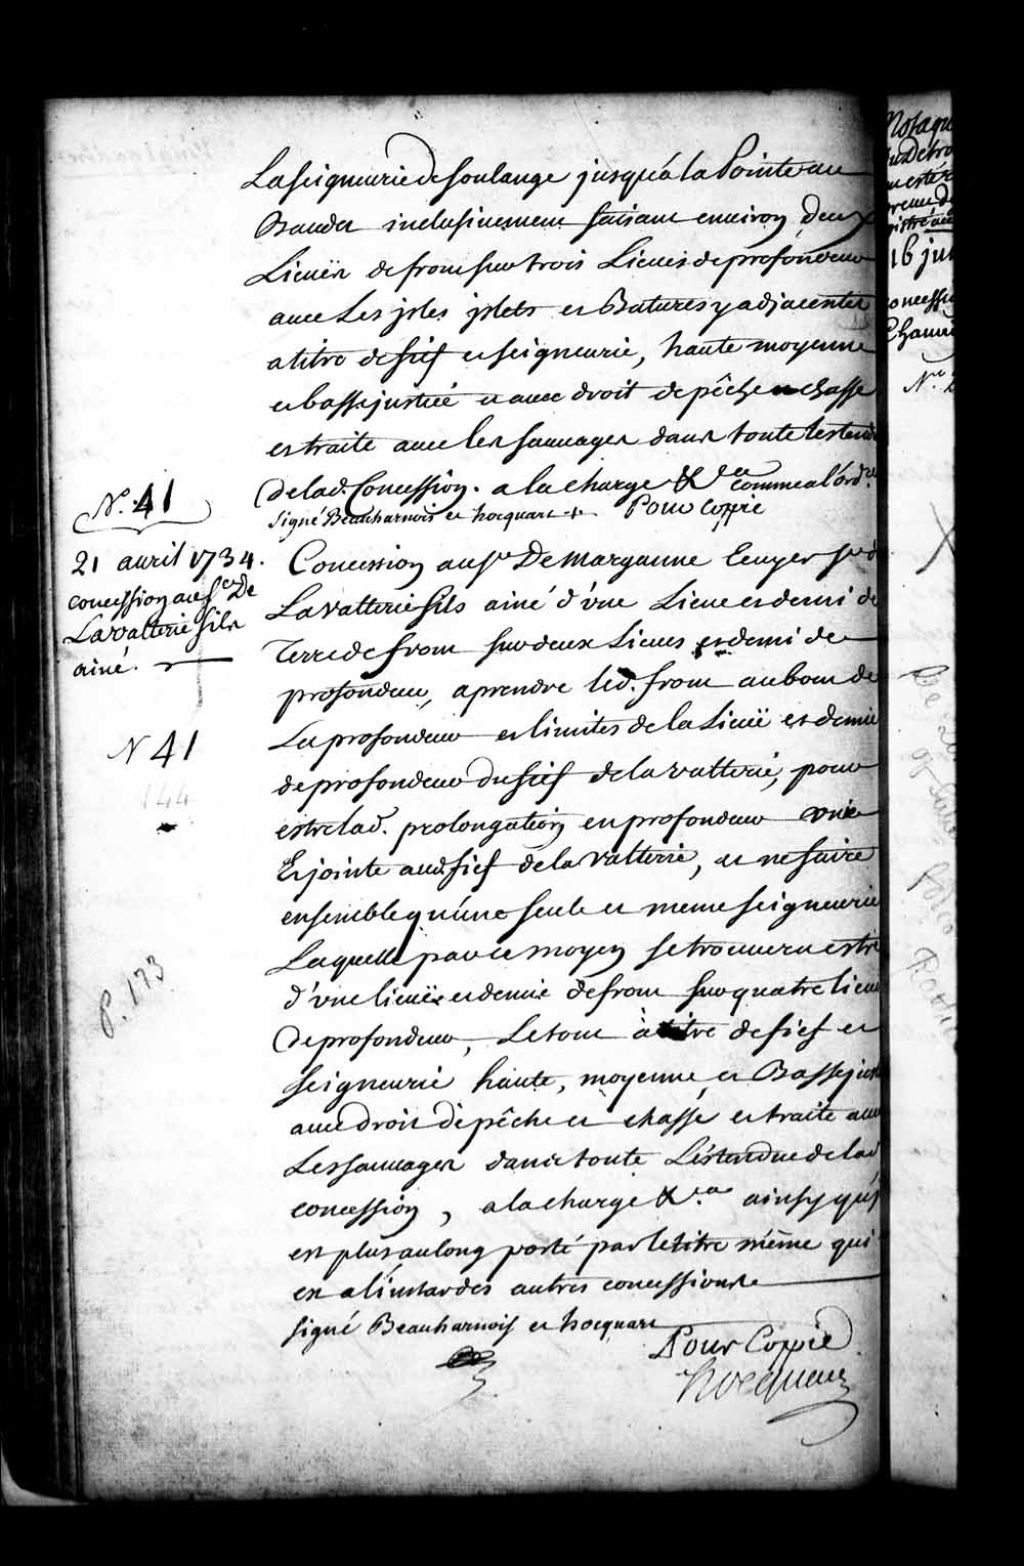 La seigneurie de soulange jusqu'á la Pointe au
Baudet inclusivement faisant environ deux
Lieuës de front sur trois Lieues de profondeur
avec Les isles islets et Batures y adjacentes
a titre de fief et seigneurie, haute moyenne
et basse justice et avec droit de pêche et chasse
et traite avec les sauvages dans toute l'estend
de lad. Concession. a la charge &.ca comme a l'ord.re
signé Beauharnois et hocquart Pour Copie
N.o 41
21 avril 1734.
concession au S.r De
Lavalterie fils
ainé.
Concession au S.r De Marganne Ecuyer S.r d
Lavalterie fils ainé d'une Lieue et demi de
Terre de front sur deux Lieues et demi de
profondeur, a prendre led. front au bout de
La profondeur et limites de la Lieuë et demie
de profondeur du fief de la valterie, pour
estre lad. prolongation en profondeur unie
Et jointe aud. fief de la valterie, et ne faire
ensemble qu'une seule et meme seigneurie
Laquelle par ce moyen se trouvera estre
d'une lieuë et demie de front sur quatre lieues
De profondeur, Le tout à titre de fief et
seigneurie haute, moyenne et Basse just
avec droit de pêche et chasse et traite avec
Les sauvages dans toute L'éstendue de lad
concession, a la charge &.ca ainsy qu'il
est plus au long porté par le titre même qui
est a l'instar des autres concessions
signé Beauharnois et hocquart
Pour Copie
hocquart
N 41
144
P. 173
16 jui
N.o